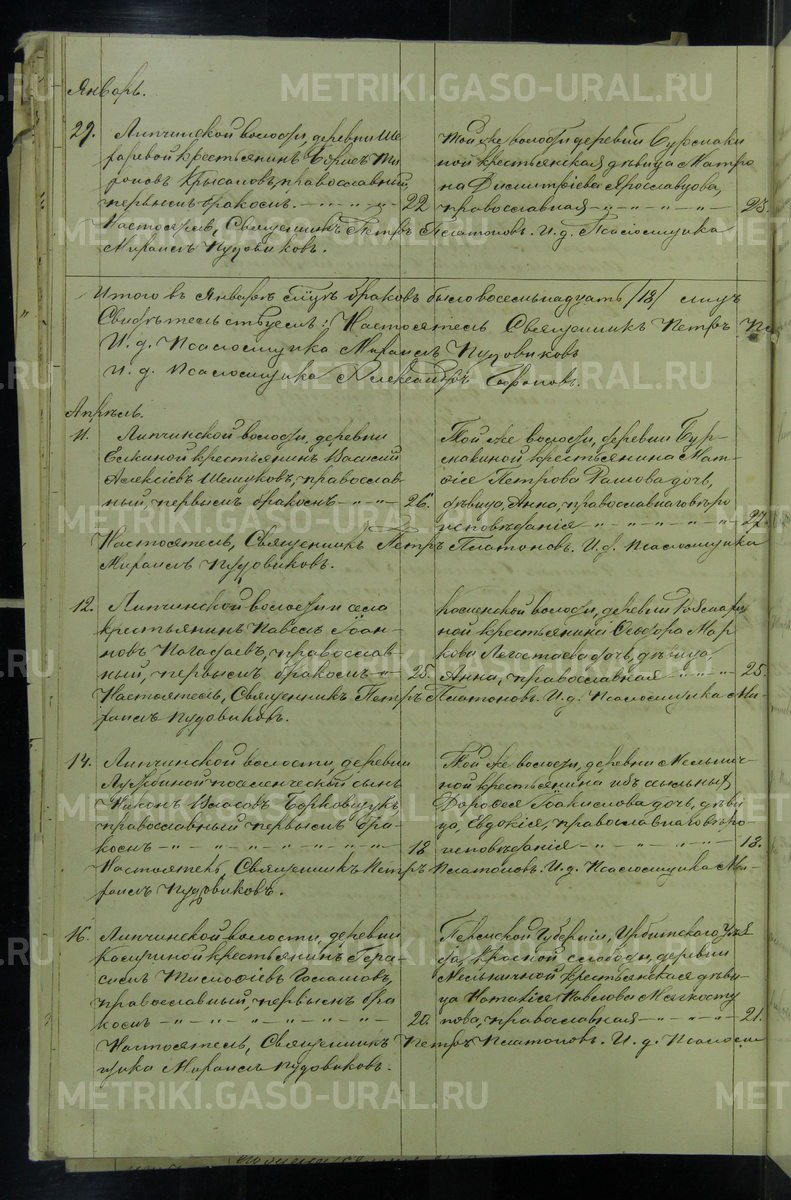 Январь.
29. Липчинской волости, деревни Ше
гаревой крестьянинъ Борисъ Ми
роновъ Крысаловъ, православный,
первымъ бракомъ. 22
Той же волости деревни Бурмаки
ной крестьянская дѣвица Матро
на Димитріева Ярославцова,
православная 23.
Настоятель, Священникъ Петръ Платоновъ. И. д. Псаломщика
Михаилъ Пудовиковъ.
Итого въ Январѣ мѣсяцѣ браковъ было восемьнадцать /18/
Свидѣтельствуемъ: Настоятель Священникъ Петръ
И. д. Псаломщика Михаилъ Пудовиковъ
И. д. Псаломщика Александръ
Апрѣль.
11. Липчинской волости, деревни
Елкиной крестьянинъ Василій
Алексіевъ православ-
ный, первымъ бракомъ 26.
Той же волости, деревни Бур-
макиной крестьянина Мат-
ѳія Петрова дочь,
дѣвица, Анна, православнаго вѣро
исповѣданія 27.
Настоятель, Священникъ Петръ Платоновъ. И. д. Псаломщика
Михаилъ Пудовиковъ.
12. Липчинской волости села
крестьянинъ Павелъ Іоан-
новъ православ-
ный, первымъ бракомъ 25.
волости, деревни
ной крестьянина Ѳеодора Мар
кова Легостаева дочь, дѣвица
Анна, православная 25.
Настоятель, Священникъ Петръ Платоновъ. И. д. Псаломщика Ми-
хаилъ Пудовиковъ.
14. Липчинской волости, деревни
Лужбиной поселенческій сынъ
Никонъ Власовъ Борковщукъ,
православный первымъ бра-
комъ 18
Той же волости, деревни Мельнич-
ной крестьянина изъ ссыльныхъ
Дороѳея дочь, дѣви
ца, Евдокія, православнаго вѣро
исповѣданія 18.
Настоятель, Священникъ Петръ Платоновъ. И. д. Псаломщика Ми-
хаилъ Пудовиковъ.
16. Липчинской волости, деревни
крестьянинъ Гера
симъ Тимоѳіевъ
православный, первымъ бра
комъ 20.
Пермской Губерніи, Ирбитскаго Уѣз
да, Красной слободы, деревни
Мельничной крестьянская дѣви
ца Наталія Павлова Мягкосту
пова, православная 21.
Настоятель, Священникъ Петръ Платоновъ. И. д. Псалом
щика Михаилъ Пудовиковъ.
METRIKI.GASO-URAL.RU